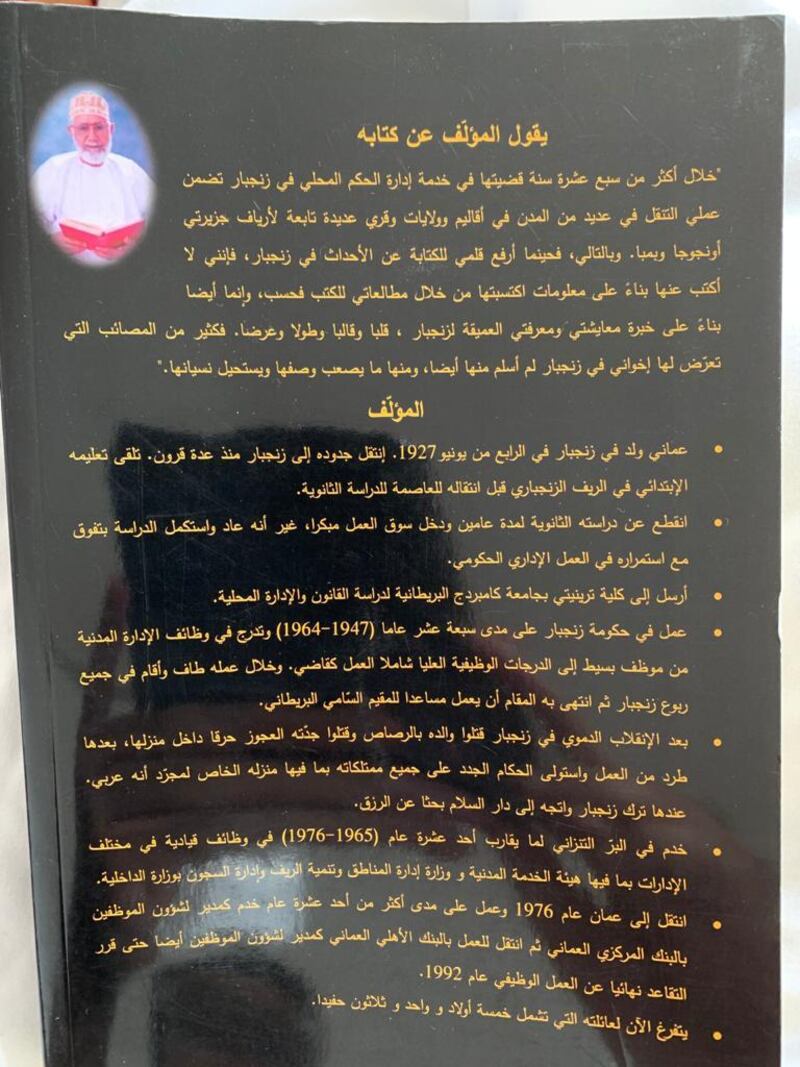 يقول المؤلّف عن كتابه
"خلال أكثر من سبع عشرة سنة قضيتها في خدمة إدارة الحكم المحلي في زنجبار تضمن
عملي التنقل في عديد من المدن في أقاليم وولايات وقري عديدة تابعة لأرياف جزيرتي
أونجوجا وبمبا. وبالتالي، فحينما أرفع قلمي للكتابة عن الأحداث في زنجبار، فإنني لا
أكتب عنها بناءً على معلومات اكتسبتها من خلال مطالعاتي للكتب فحسب، وإنما أيضا
بناءً على خبرة معايشتي ومعرفتي العميقة لزنجبار ، قلبا وقالبا وطولا وعرضا. فكثير من المصائب التي
تعرّض لها إخواني في زنجبار لم أسلم منها أيضا، ومنها ما يصعب وصفها ويستحيل نسيانها."
المؤلّف
• عماني ولد في زنجبار في الرابع من يونيو 1927. إنتقل جدوده إلى زنجبار منذ عدة قرون. تلقى تعليمه
الإبتدائي في الريف الزنجباري قبل انتقاله للعاصمة للدراسة الثانوية.
• انقطع عن دراسته الثانوية لمدة عامين ودخل سوق العمل مبكرا، غير أنه عاد واستكمل الدراسة بتفوق
مع استمراره في العمل الإداري الحكومي.
• أرسل إلى كلية ترينيتي بجامعة كامبردج البريطانية لدراسة القانون والإدارة المحلية.
• عمل في حكومة زنجبار على مدى سبعة عشر عاما (1947-1964) وتدرج في وظائف الإدارة المدنية
من موظف بسيط إلى الدرجات الوظيفية العليا شاملا العمل كقاضي. وخلال عمله طاف وأقام في جميع
ربوع زنجبار ثم انتهى به المقام أن يعمل مساعدا للمقيم السّامي البريطاني.
• بعد الإنقلاب الدموي في زنجبار قتلوا والده بالرصاص وقتلوا جدّته العجوز حرقا داخل منزلها، بعدها
طرد من العمل واستولى الحكام الجدد على جميع ممتلكاته بما فيها منزله الخاص لمجرّد أنه عربي.
عندها ترك زنجبار واتجه إلى دار السلام بحثا عن الرزق.
• خدم في البرّ التنزاني لما يقارب أحد عشرة عام (1965-1976) في وظائف قيادية في مختلف
الإدارات بما فيها هيئة الخدمة المدنية و وزارة إدارة المناطق وتنمية الريف وإدارة السجون بوزارة الداخلية.
• انتقل إلى عمان عام 1976 وعمل على مدى أكثر من أحد عشرة عام خدم كمدير لشؤون الموظفين
بالبنك المركزي العماني ثم انتقل للعمل بالبنك الأهلي العماني كمدير لشؤون الموظفين أيضا حتى قرر
التقاعد نهائيا عن العمل الوظيفي عام 1992.
• يتفرغ الآن لعائلته التي تشمل خمسة أولاد و واحد و ثلاثون حفيدا.